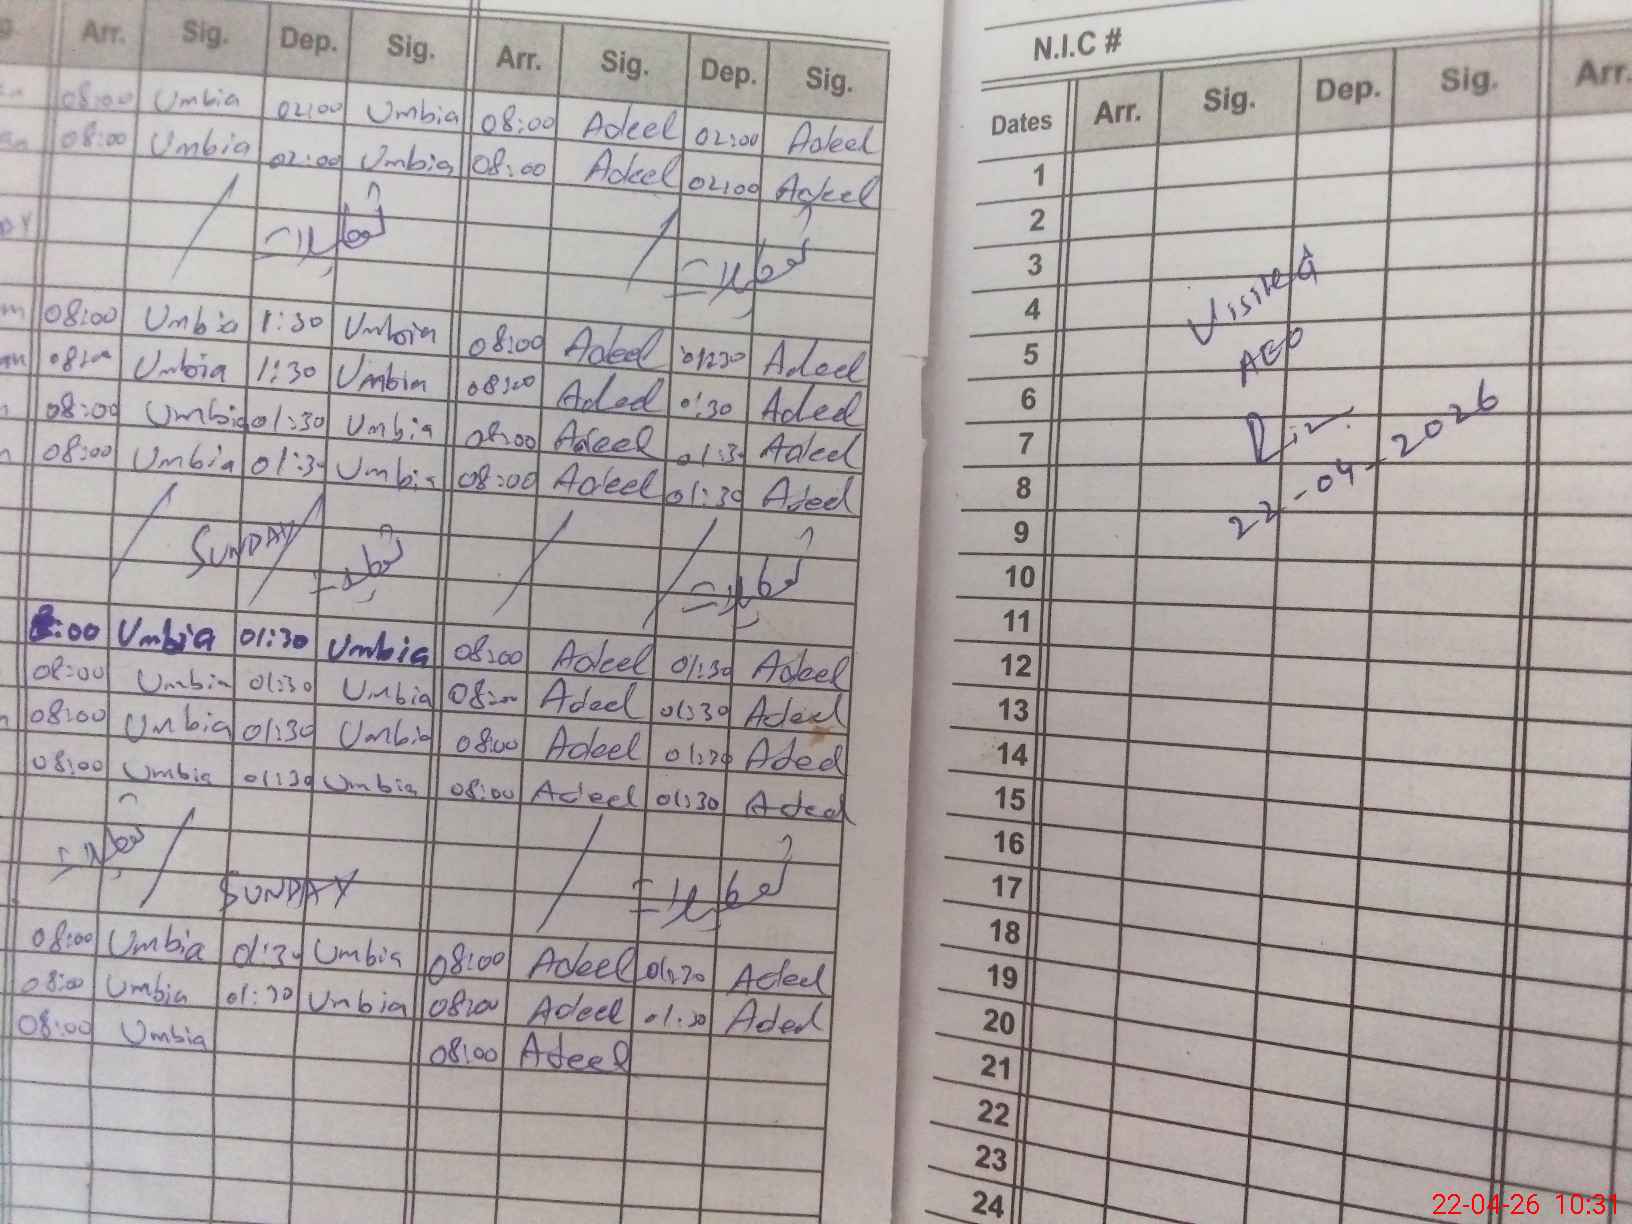 Arr. Sig. Dep. Sig. Arr. Sig. Dep. Sig.
08:00 Umbia 02:00 Umbia 08:00 Adeel 02:00 Adeel
08:00 Umbia 02:00 Umbia 08:00 Adeel 02:00 Adeel
08:00 Umbia 1:30 Umbia 08:00 Adeel 01:30 Adeel
08:00 Umbia 1:30 Umbia 08:00 Adeel 01:30 Adeel
08:00 Umbia 01:30 Umbia 08:00 Adeel 01:30 Adeel
08:00 Umbia 01:30 Umbia 08:00 Adeel 01:30 Adeel
SUNDAY
8:00 Umbia 01:30 Umbia 08:00 Adeel 01:30 Adeel
08:00 Umbia 01:30 Umbia 08:00 Adeel 01:30 Adeel
08:00 Umbia 01:30 Umbia 08:00 Adeel 01:30 Adeel
08:00 Umbia 01:30 Umbia 08:00 Adeel 01:30 Adeel
SUNDAY
08:00 Umbia 01:30 Umbia 08:00 Adeel 01:30 Adeel
08:00 Umbia 01:30 Umbia 08:00 Adeel 01:30 Adeel
08:00 Umbia 08:00 Adeel
N.I.C #
Dates Arr. Sig. Dep. Sig. Arr.
1
2
3
4
5
6
7
8
9
10
11
12
13
14
15
16
17
18
19
20
21
22
23
24
Visited
AEO
22-04-2026
22-04-26 10:31